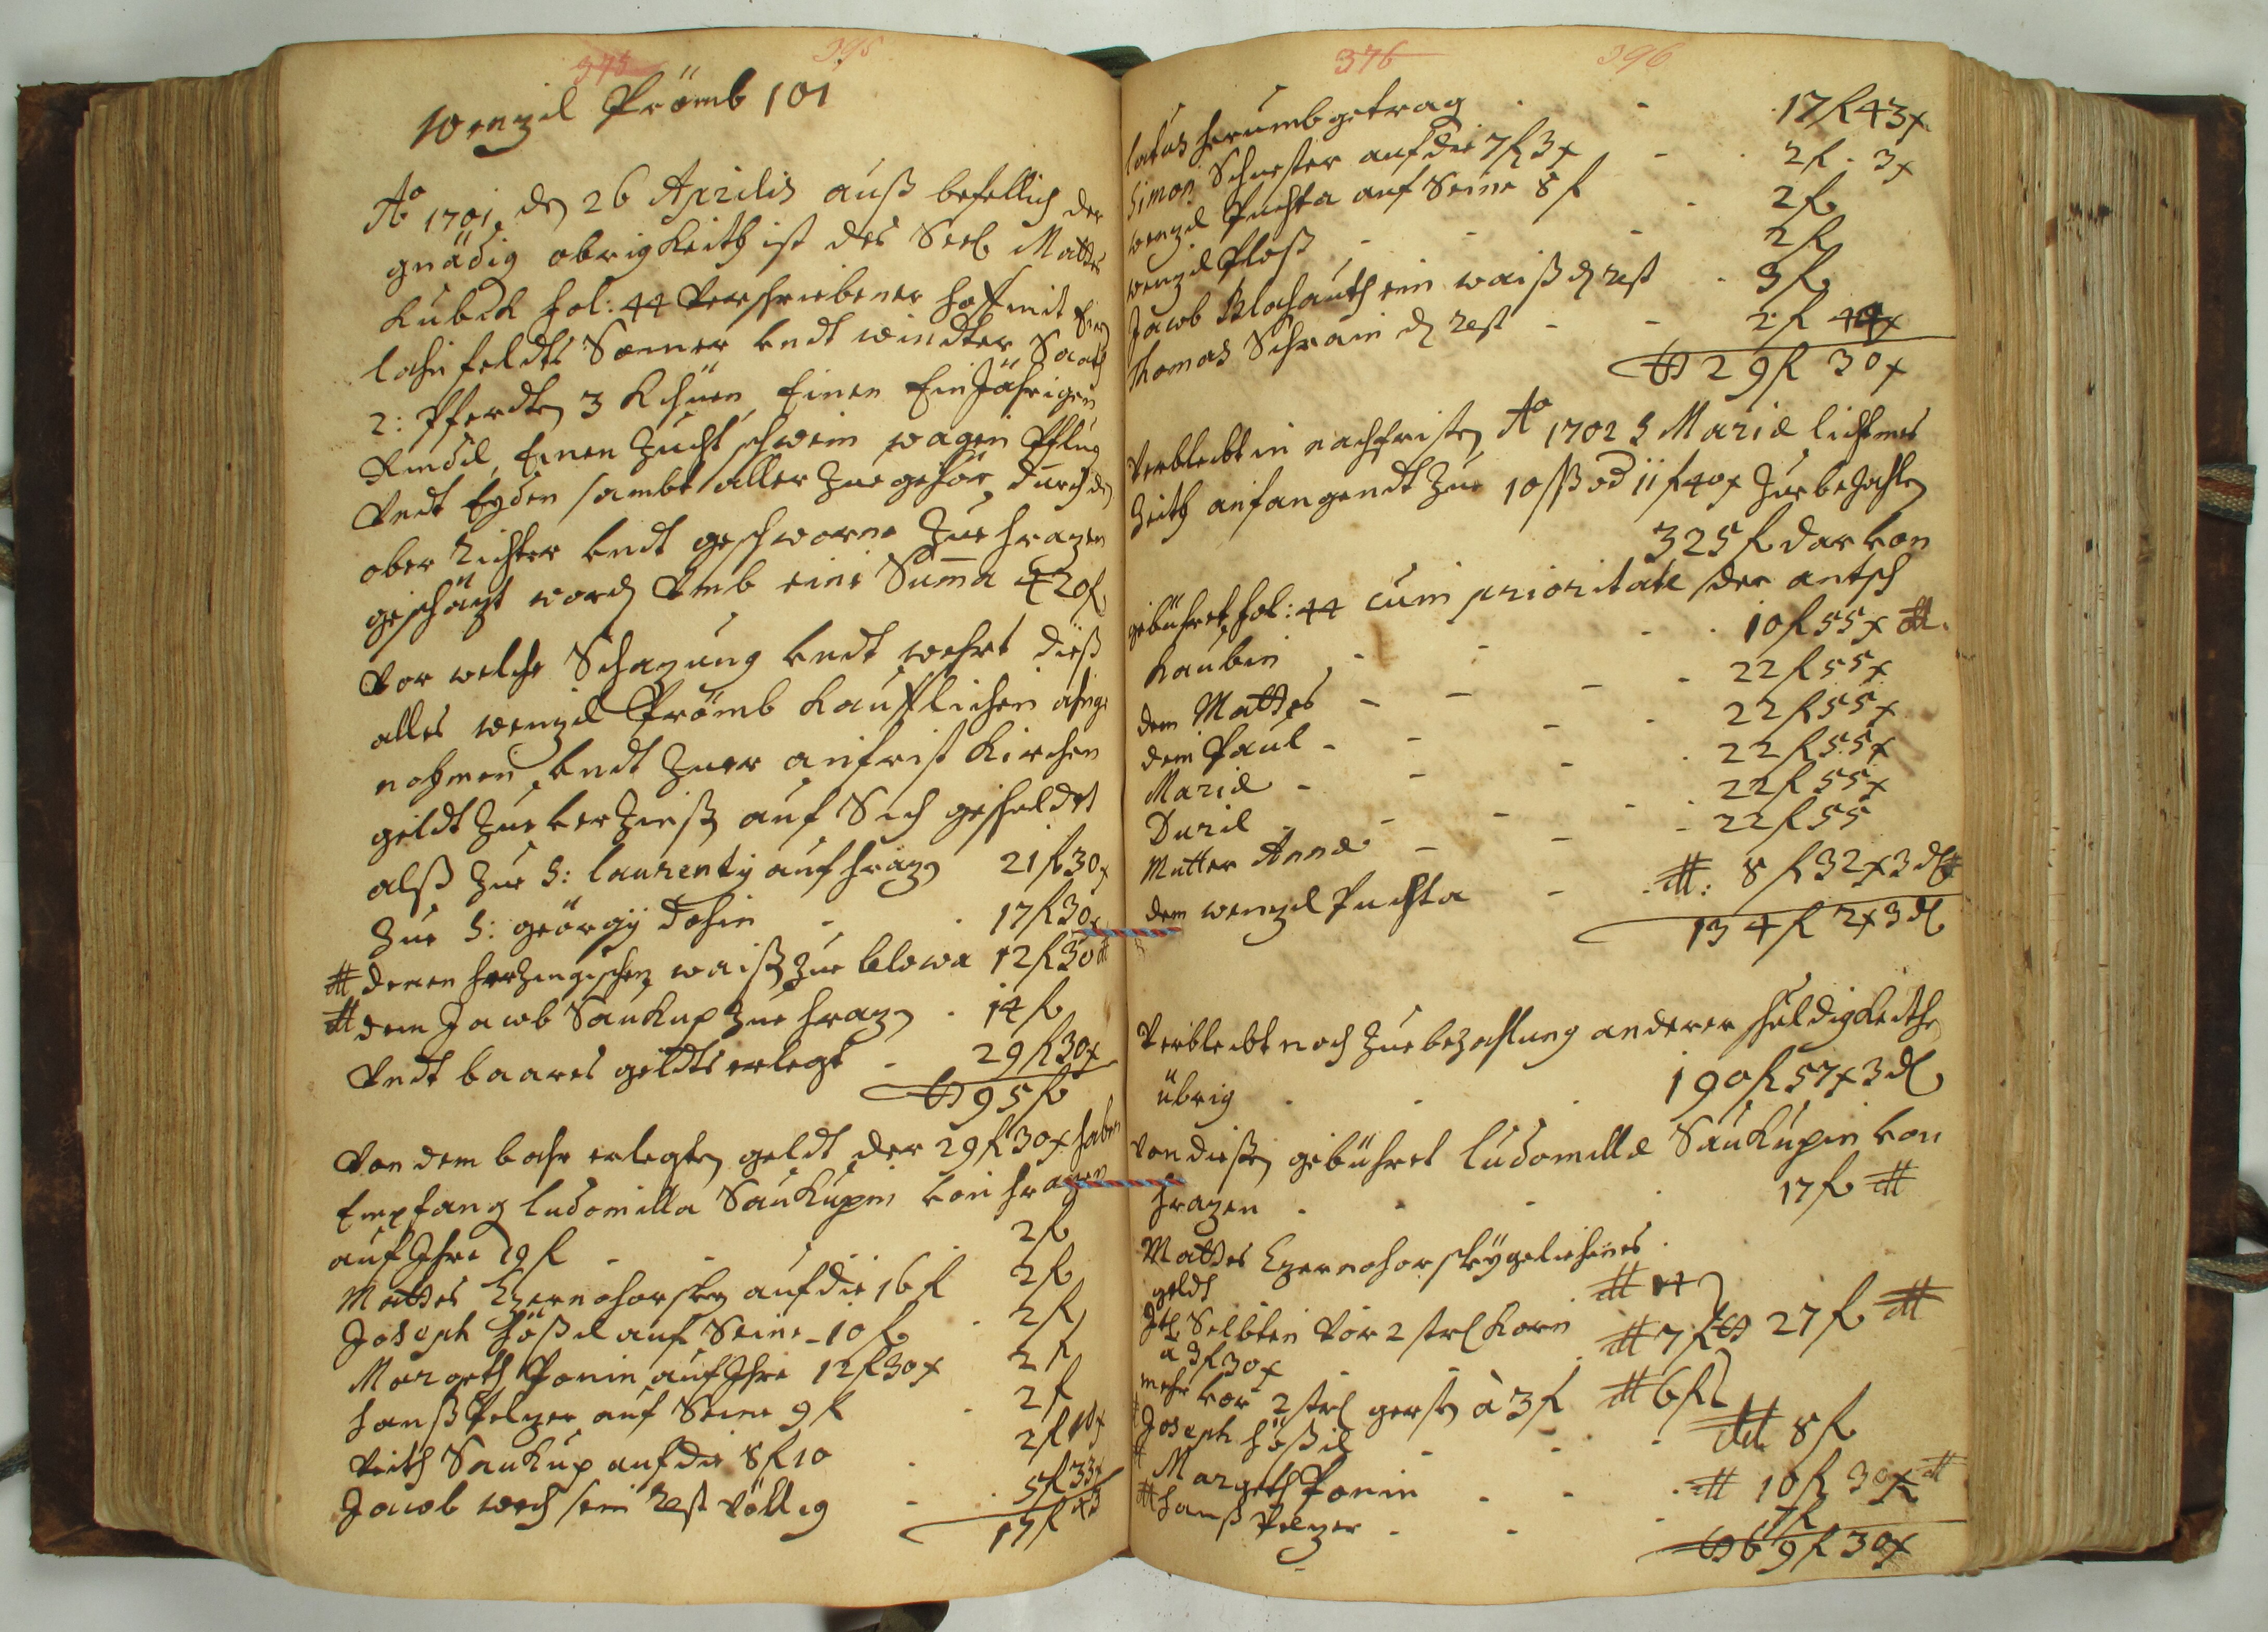 375 395
Wenzel Prömb 101
Ao 1701 den 26 Aprilis auß befellich der
gnädig obrigkeith ist des Seel Mattes
Kubik fol: 44 verschriebener Hoff mit
lahn feldts Somer undt windter Saath
2: Pferdten 3 Khüen Einen Einjährigen
Rindel, Einen Zucht schwein wagen Pflug
Undt Eyden sambt aller Zue gehör, durch den
ober Richter undt geschworne Zue Hrazen
geschäzt worden Umb eine Suma 420 f
Vor welche Schazung undt wehrt dieß
alles wenzel Prömb Kaufflichen ahnge
nohmen, undt Zuer anfrist Kirchen
geldt Zue verZinß auf Sich gescheldet
alß Zue S: Laurenty auf Hrazen 21 f 30 x
Zue S: Georgÿ dohin - 17 f 30 x
denen waiß Zue blowa 12 f 30
dem Jacob Saukup Zue Hrazen - 14 f
Undt baares geldts erlegt - 29 f 30 x
95 f
Von dem bahr erlegten geldt der 29 f 30 x haben
Empfang Ludomilla Saukupin von Hrazen
auf Ihre 19 f - - - 2 f
Mattes Czernohorsky auf die 16 f 2 f
Joseph Hößl auf Seine - 10 f - 2 f
Margeth Ponin auf Ihre 12 f 30 x 2 f
Hanß Pelzer auf Seine 9 f - 2 f
Veith Saukup auf die 8 f 10 - 2 f 10 x
Jacob wech sein Rest völlig - - 5 f 33 x
17 f 43
376 396
Latus herumb getrag - - 17 f 43 x
Simon Schuester auf die 7 f 3 x - - 2 f - 3 x
wenzel Puchta auf Seine 8 f - 2 f
wenzel Ploß - - - 2 f
Jacob Blohauth ein waiß den rest - 3 f
Thomas Schrain den rest - - 2 f 44 x
29 f 30 x
Verbleibt in nachfristen, Ao 1702 S Mariae lichtmes
Zeith anfangendt Zue 10 ß od 11 f 40 x Zue beZahlen
325 f dar von
gebühret fol: 44 cum prioritate der
Kaubin - - - 10 f 55 x
dem Mattes - - - - 22 f 55 x
dem Paul - - - - 22 f 55 x
Mariae - - - - 22 f 55 x
Duril - - - - 22 f 55 x
Mutter Annae - - - 22 f 55
dem wenzel Puchta - 8 f 32 x 3 d
134 f 2 x 3 d
Verbleibt noch Zue bezahlung anderer schuldigkeithen
übrig - - - 190 f 57 x 3 d
Von dießen gebühret Ludomillae Saukupin von
Hrazen - - - - 17 f
Mattes Czernohorsky geliehenes
geldt 14
Selbten vor 2 strl Korn 7 f 27 f
a 3 f 30 x
mehr vor 2 strl gersten à 3 f 6 f
Joseph Hößel - - - 8 f
Margeth Ponin - - - 10 f 30 x
Hanß Pelzer - - - 7 f
69 f 30 x